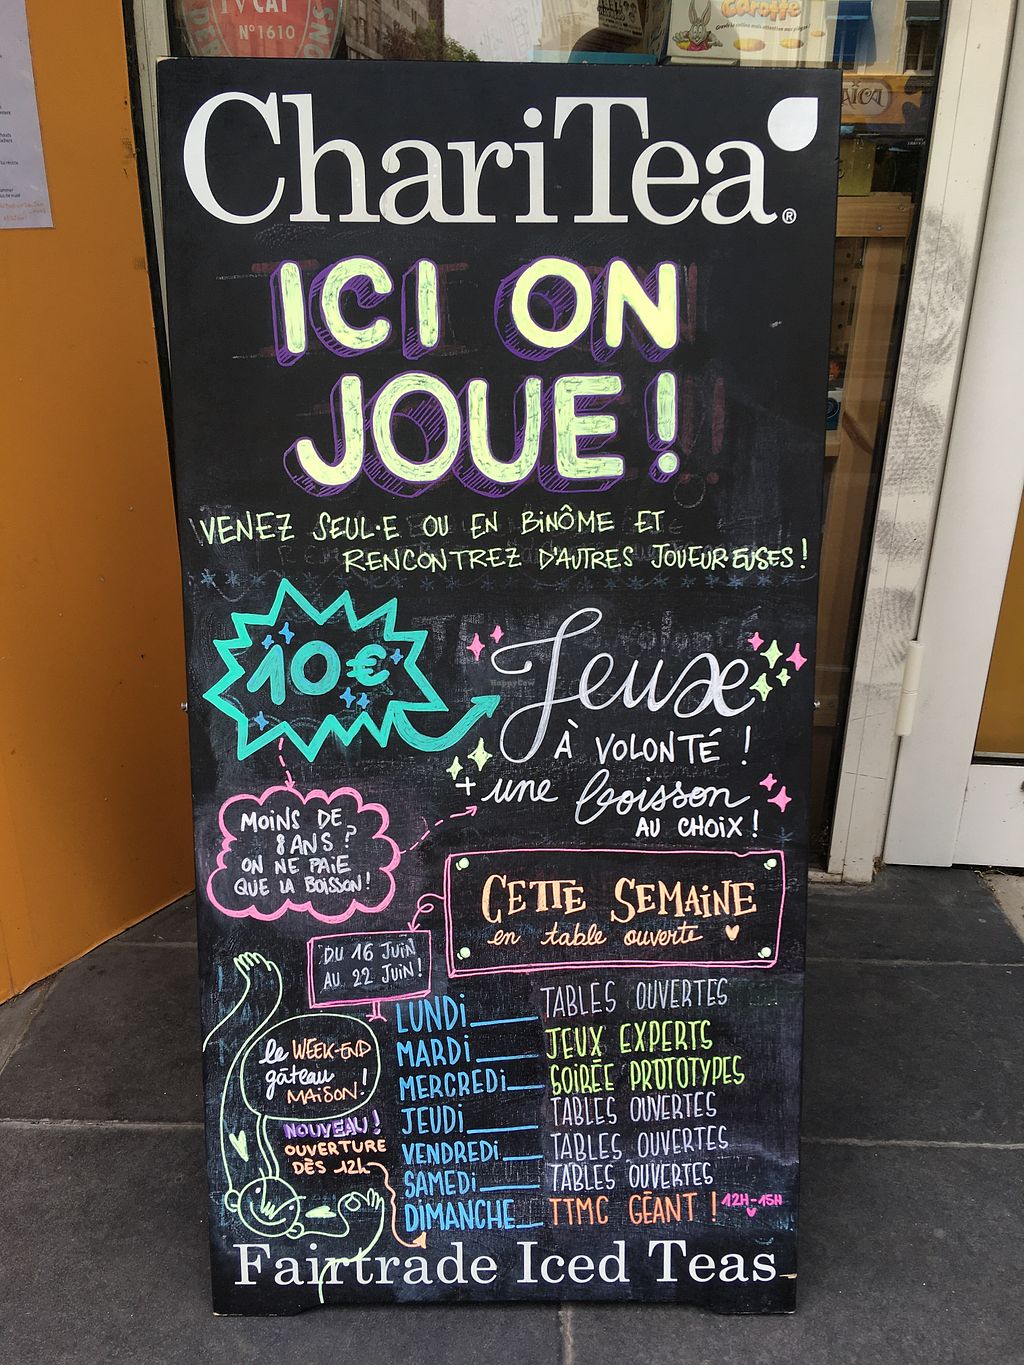 TVCAT
N°1610
Carotte
ChariTea®
ICI ON
JOUE!
VENEZ SEUL·E OU EN BINÔME ET
RENCONTREZ D'AUTRES JOUEUR·EUSES!
10€
Jeux
À VOLONTÉ !
+ une boisson
AU CHOIX !
MOINS DE
8 ANS ?
ON NE PAIE
QUE LA BOISSON!
CETTE SEMAINE
en table ouverte
DU 16 JUIN
AU 22 JUIN!
LUNDI TABLES OUVERTES
MARDI JEUX EXPERTS
MERCREDI SOIRÉE PROTOTYPES
JEUDI TABLES OUVERTES
VENDREDI TABLES OUVERTES
SAMEDI TABLES OUVERTES
DIMANCHE TTMC GÉANT ! 12H-15H
le WEEK-END
gâteau
MAISON!
NOUVEAU!
OUVERTURE
DÈS 12h
Fairtrade Iced Teas
HappyCow